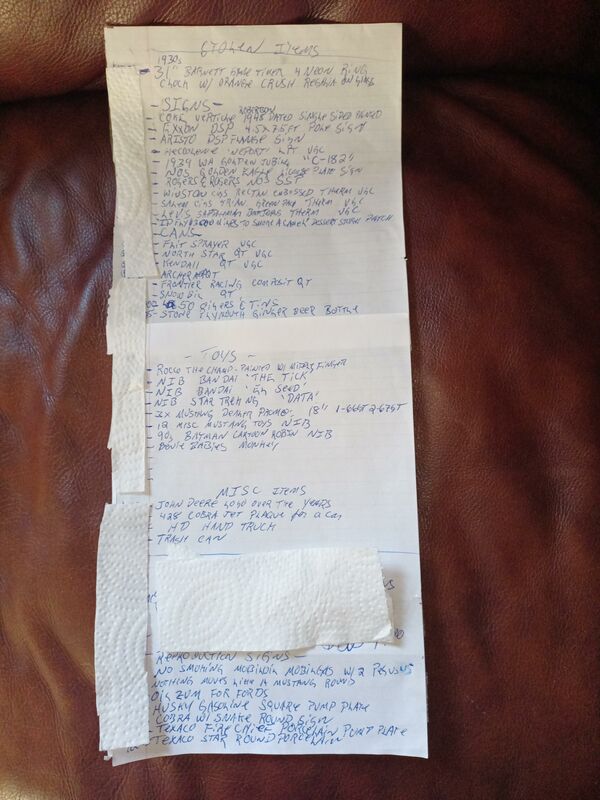 Stolen Items
1930s
31" BARNETT GAME TIMER 4 NEON RING
CLOCK W/ ORANGE CRUSH REGALIA ON GLASS
- SIGNS -
COKE VERTICLE 1948 DATED SINGLE SIDED
- EXXON DSP 4.5 X 7.5 FT. POLE SIGN
- ARISTO DSP FLANGE SIGN
- 1939 WA GOLDEN JUBILEE "C-182"
- NOS GOLDEN EAGLE LICENSE PLATE SIGN
- ROGERS & ROGERS NOS SST
- WINSTON CIGS RECTAN EMBOSSED THERM VGC
- SALEM CIGS GREEN PACK THERM VGC
- LEVI'S THERM VGC
- I'D WALK MILES TO SMOKE A CAMEL
- CANS -
- FLIT SPRAYER VGC
- NORTH STAR QT VGC
- KENDALL QT VGC
- ARCHER QT
- FRONTIER RACING COMPOSIT QT
- SNOWBIL QT
50 OILERS & TINS
- STONE PLYMOUTH GINGER BEER BOTTLE
- TOYS -
- ROCCO THE CHAMP - PAINTED W/ FINGER
- NIB BANDAI 'THE TICK'
- NIB BANDAI SEED'
- NIB STAR TREK NG 'DATA'
3X MUSTANG DEALER PROMOS. 18"
12 MISC MUSTANG TOYS NIB
- 90s BATMAN CARTOON ROBIN NIB
BABIES MONKEY
MISC ITEMS
JOHN DEERE LOGO OVER THE YEARS
- 428 COBRA JET PLAQUE for a car
HD HAND TRUCK
- TRASH CAN
REPRODUCTION SIGNS -
NO SMOKING MOBILOIL MOBILGAS W/ 2 PEGUSUS
NOTHING MOVES LIKE A MUSTANG ROUND
OILZUM FOR FORDS
HUSKY GASOLINE SQUARE PUMP PLATE
COBRA W/ SNAKE ROUND SIGN
TEXACO FIRE CHIEF PORCELAIN PUMP PLATE
TEXACO STAR ROUND PORCELAIN